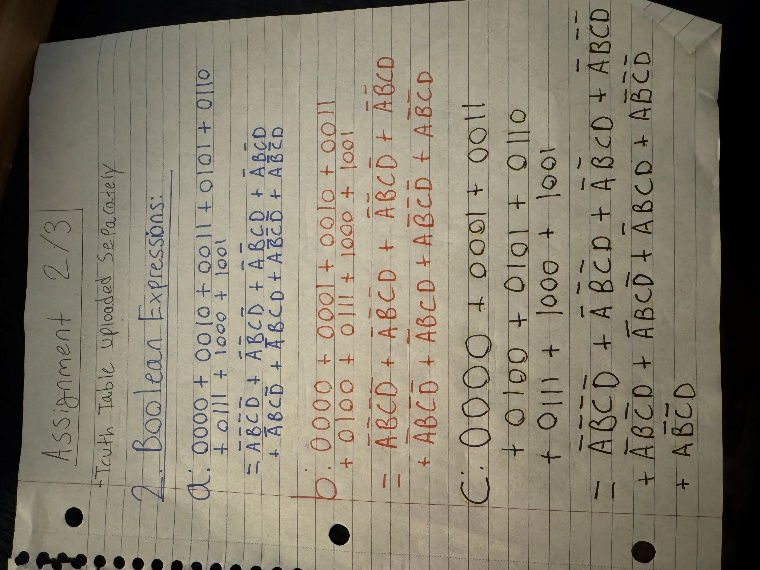 Assignment 2/3
-Truth Table uploaded separately
2. Boolean Expressions:
a: 0000 + 0010 + 0011 + 0101 + 0110
+ 0111 + 1000 + 1001
= A̅B̅C̅D̅ + A̅B̅CD̅ + A̅B̅CD + A̅BC̅D
+ A̅BCD̅ + A̅BCD + AB̅C̅D̅ + AB̅C̅D
b: 0000 + 0001 + 0010 + 0011
+ 0100 + 0111 + 1000 + 1001
= A̅B̅C̅D̅ + A̅B̅C̅D + A̅B̅CD̅ + A̅B̅CD
+ A̅BC̅D̅ + A̅BCD + AB̅C̅D̅ + AB̅C̅D
C: 0000 + 0001 + 0011
+ 0100 + 0101 + 0110
+ 0111 + 1000 + 1001
= A̅B̅C̅D̅ + A̅B̅C̅D + A̅B̅CD + A̅BC̅D̅
+ A̅BC̅D + A̅BCD̅ + A̅BCD + AB̅C̅D̅
+ AB̅C̅D